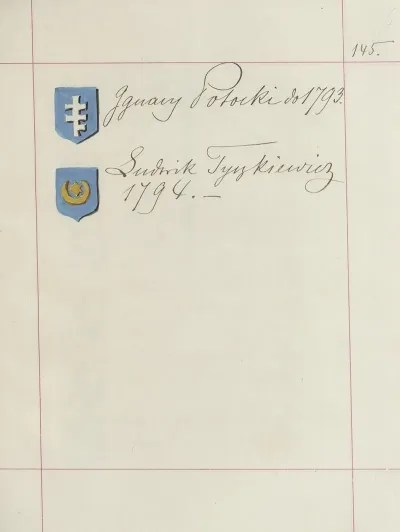 145.
Ignacy Potocki do 1793.
Ludwik Tyszkiewicz
1794. –